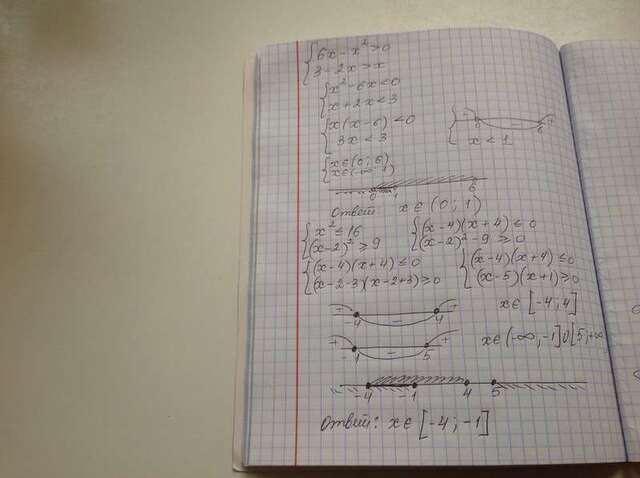 {6x-x²>0
{3-2x>x
{x²-6x<0
{x+2x<3
{x(x-6)<0
{3x<3
+ 0 - 6 +
x<1
{x∈(0;6)
{x∈(-∞;1)
0 1 6
Ответ x∈(0;1)
{x²≤16
{(x-2)²≥9
{(x-4)(x+4)≤0
{(x-2)²-9≥0
{(x-4)(x+4)≤0
{(x-2-3)(x-2+3)≥0
{(x-4)(x+4)≤0
{(x-5)(x+1)≥0
+ -4 - 4 +
x∈[-4;4]
+ -1 - 5 +
x∈(-∞;-1]U[5;+∞
-4 -1 4 5
Ответ: x∈[-4;-1]